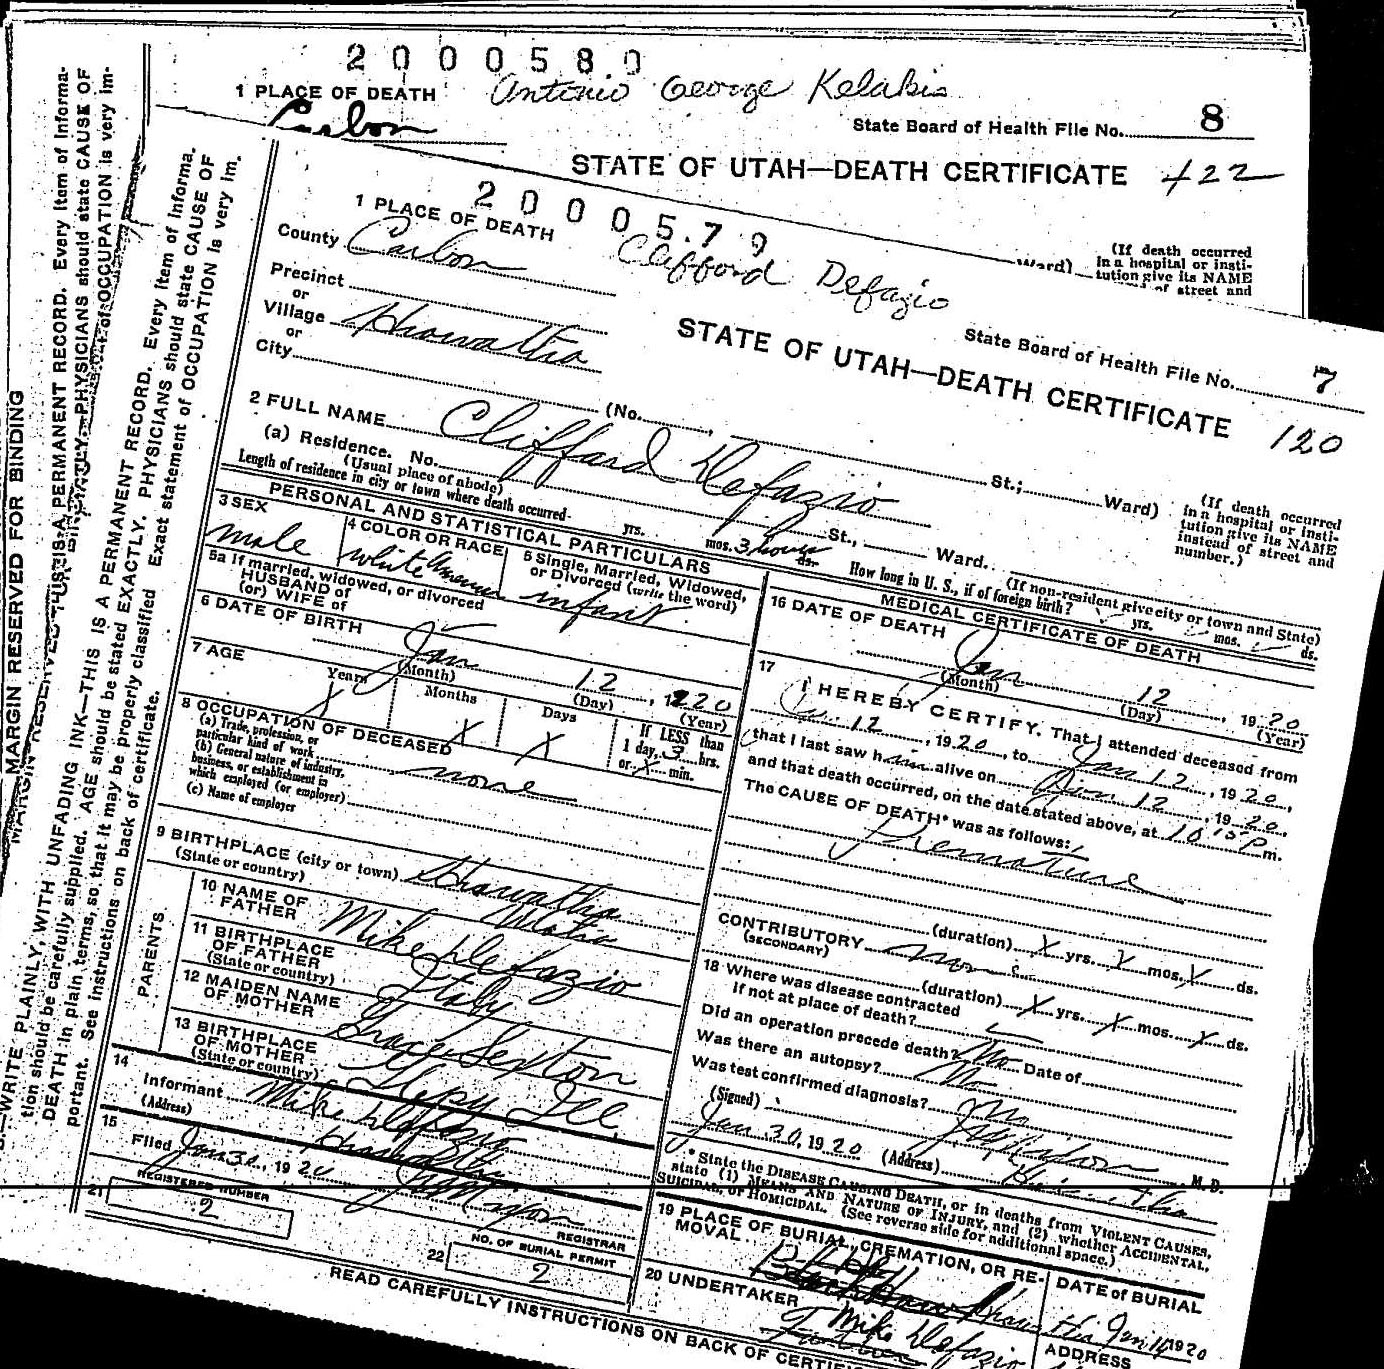 2000580
1 PLACE OF DEATH Antonio George Kelakis
Carbon
State Board of Health File No. 8
STATE OF UTAH—DEATH CERTIFICATE 422
Ward)
(If death occurred
in a hospital or insti-
tution give its NAME
of street and
MARGIN RESERVED FOR BINDING
WRITE PLAINLY, WITH UNFADING INK—THIS IS A PERMANENT RECORD. Every item of informa-
tion should be carefully supplied. AGE should be stated EXACTLY. PHYSICIANS should state CAUSE OF
DEATH in plain terms, so that it may be properly classified Exact statement of OCCUPATION is very im-
portant. See instructions on back of certificate.
2000579
1 PLACE OF DEATH Clifford Defazio
County Carbon
State Board of Health File No. 7
Precinct
or
Village Hiawatha
or
City
STATE OF UTAH—DEATH CERTIFICATE 120
(No. St.; Ward)
(If death occurred
in a hospital or insti-
tution give its NAME
instead of street and
number.)
2 FULL NAME Clifford Defazio
(a) Residence. No. St., Ward.
(Usual place of abode) (If non-resident give city or town and State)
Length of residence in city or town where death occurred yrs. mos. 3 hours ds. How long in U. S., if of foreign birth? yrs. mos. ds.
PERSONAL AND STATISTICAL PARTICULARS
3 SEX
male
4 COLOR OR RACE
white
5 Single, Married, Widowed,
or Divorced (write the word)
infant
5a If married, widowed, or divorced
HUSBAND of
(or) WIFE of
6 DATE OF BIRTH
Jan 12, 1920
(Month) (Day) (Year)
7 AGE Years Months Days If LESS than
X X X 1 day, 3 hrs.
or X min.
8 OCCUPATION OF DECEASED
(a) Trade, profession, or
particular kind of work none
(b) General nature of industry,
business, or establishment in
which employed (or employer)
(c) Name of employer
9 BIRTHPLACE (city or town) Hiawatha
(State or country)
PARENTS
10 NAME OF
FATHER Mike Defazio
11 BIRTHPLACE
OF FATHER
(State or country) Italy
12 MAIDEN NAME
OF MOTHER Grace Sexton
13 BIRTHPLACE
OF MOTHER
(State or country)
14
Informant Mike Defazio
(Address) Hiawatha
15
Filed Jan 30, 1920
REGISTRAR
21 REGISTERED NUMBER
2
22 NO. OF BURIAL PERMIT
2
MEDICAL CERTIFICATE OF DEATH
16 DATE OF DEATH
Jan 12, 1920
(Month) (Day) (Year)
17
I HEREBY CERTIFY, That I attended deceased from
12, 1920, to Jan 12, 1920,
that I last saw him alive on Jan 12, 1920,
and that death occurred, on the date stated above, at 10 15 P m.
The CAUSE OF DEATH* was as follows:
Premature
(duration) X yrs. X mos. X ds.
CONTRIBUTORY none
(SECONDARY)
(duration) X yrs. X mos. X ds.
18 Where was disease contracted
if not at place of death?
Did an operation precede death? No Date of
Was there an autopsy? No
Was test confirmed diagnosis? No
(Signed) M. D.
Jan 30, 1920 (Address) Hiawatha
* State the DISEASE CAUSING DEATH, or in deaths from VIOLENT CAUSES,
state (1) MEANS AND NATURE OF INJURY, and (2) whether ACCIDENTAL,
SUICIDAL, or HOMICIDAL. (See reverse side for additional space.)
19 PLACE OF BURIAL, CREMATION, OR RE-
MOVAL
DATE of BURIAL
Jan 14 1920
20 UNDERTAKER
Mike Defazio
ADDRESS
READ CAREFULLY INSTRUCTIONS ON BACK OF CERTIFI